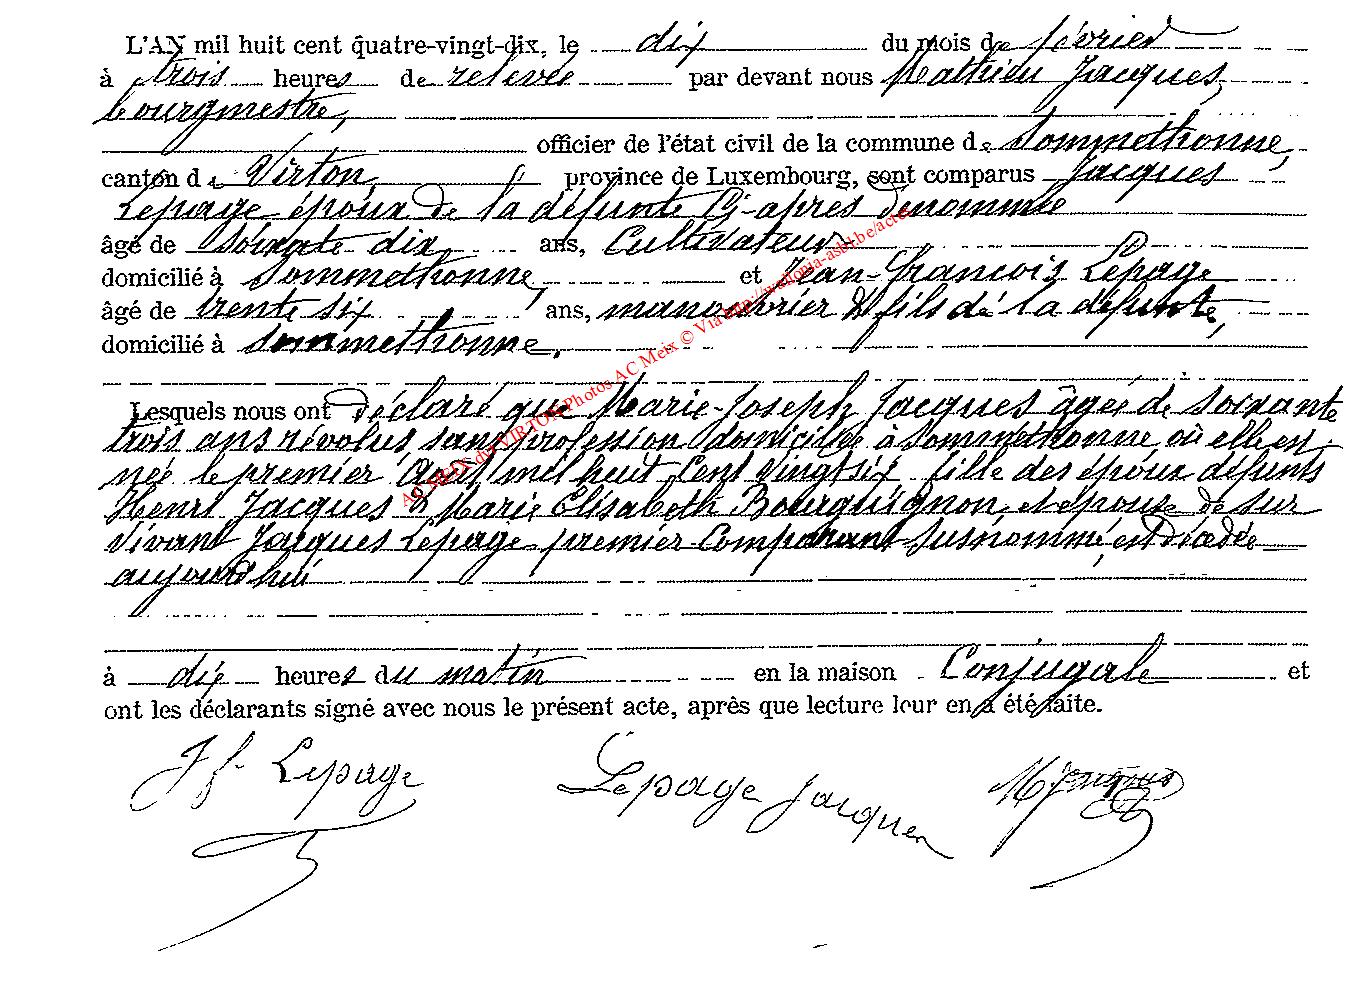 L'AN mil huit cent quatre-vingt-dix, le dix du mois de février
à trois heures de relevée par devant nous Mathieu Jacques,
bourgmestre,
officier de l'état civil de la commune de Sommethonne,
canton de Virton, province de Luxembourg, sont comparus Jacques
Lepage époux de la défunte ci-après dénommée
âgé de soixante dix ans, Cultivateur
domicilié à Sommethonne, et Jean-François Lepage
âgé de trente six ans, manouvrier & fils de la défunte,
domicilié à Sommethonne.
Lesquels nous ont Déclaré que Marie-Joseph Jacques âgée de soixante
trois ans révolus, sans profession domiciliée à Sommethonne où elle est
née le premier août mil huit cent vingt six fille des époux défunts
Henri Jacques & Marie Elisabeth Bourguignon et épouse de sur
vivant Jacques Lepage premier Comparant susnommé, est décédée
aujourd'hui
à dix heures du matin en la maison Conjugale et
ont les déclarants signé avec nous le présent acte, après que lecture leur en a été faite.
Jf Lepage Lepage Jacques
AC MEIX dvt VIRTON Photos AC Meix © Via http://wallonia-asbl.be/actes